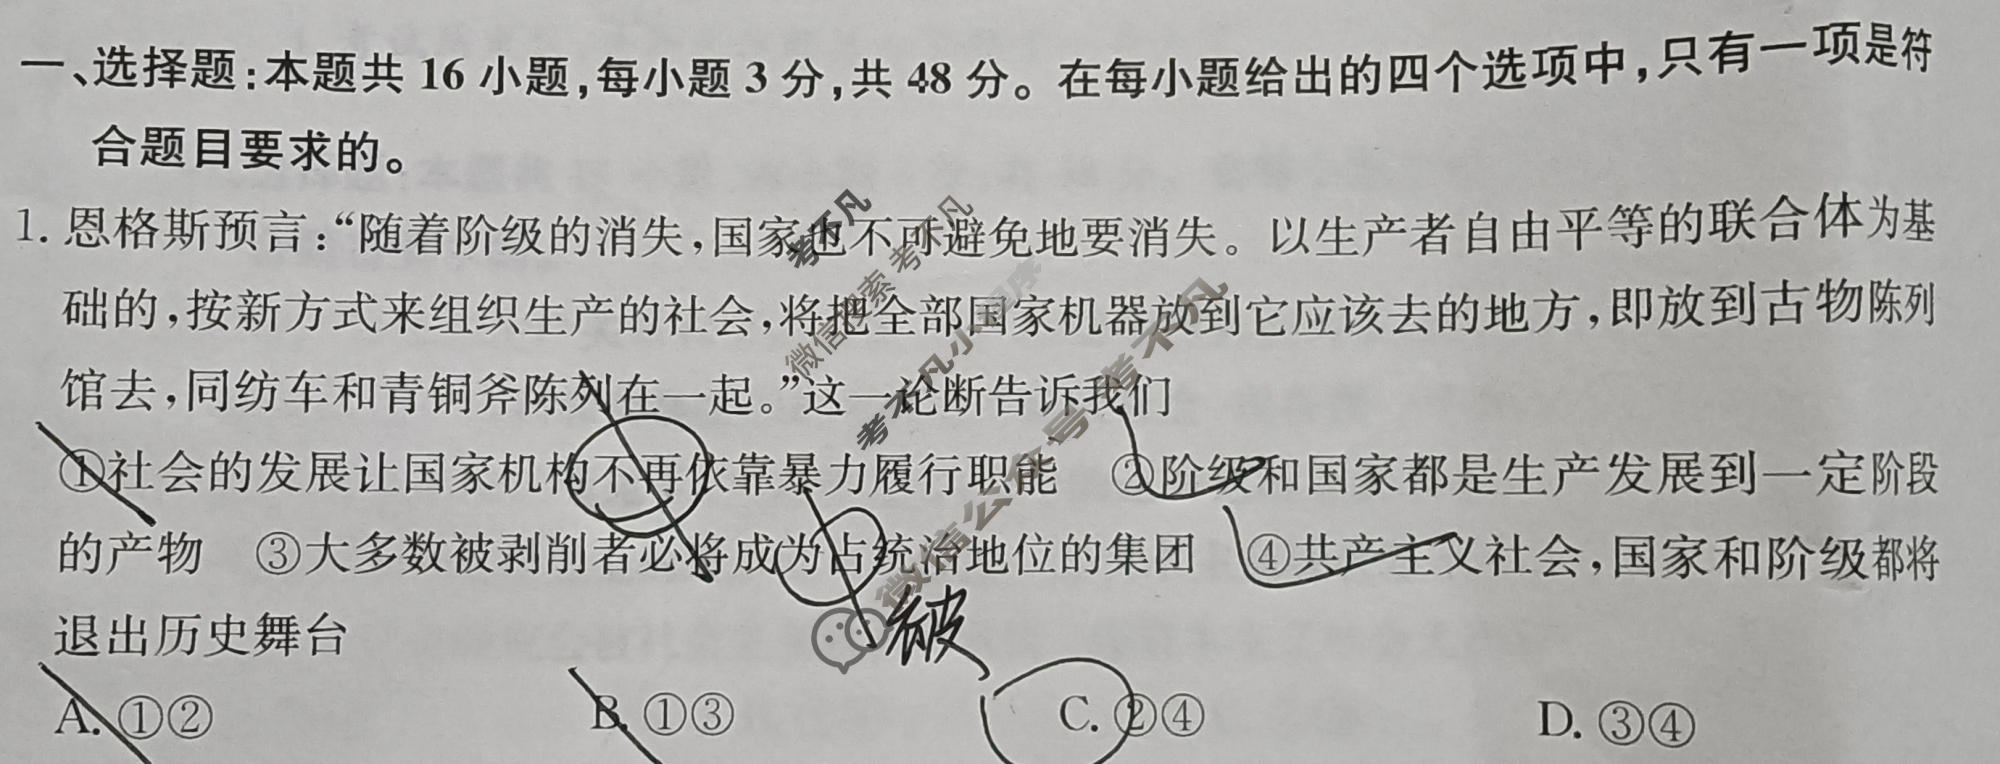 一、选择题:本题共 16 小题,每小题 3 分,共 48 分。在每小题给出的四个选项中,只有一项是符
合题目要求的。
1. 恩格斯预言:“随着阶级的消失,国家也不可避免地要消失。以生产者自由平等的联合体为基
础的,按新方式来组织生产的社会,将把全部国家机器放到它应该去的地方,即放到古物陈列
馆去,同纺车和青铜斧陈列在一起。”这一论断告诉我们
①社会的发展让国家机构不再依靠暴力履行职能 ②阶级和国家都是生产发展到一定阶段
的产物 ③大多数被剥削者必将成为占统治地位的集团 ④共产主义社会,国家和阶级都将
退出历史舞台
被
A. ①② B. ①③ C. ②④ D. ③④
考不凡
微信搜索 考不凡
考不凡小程序
微信公众号 考不凡